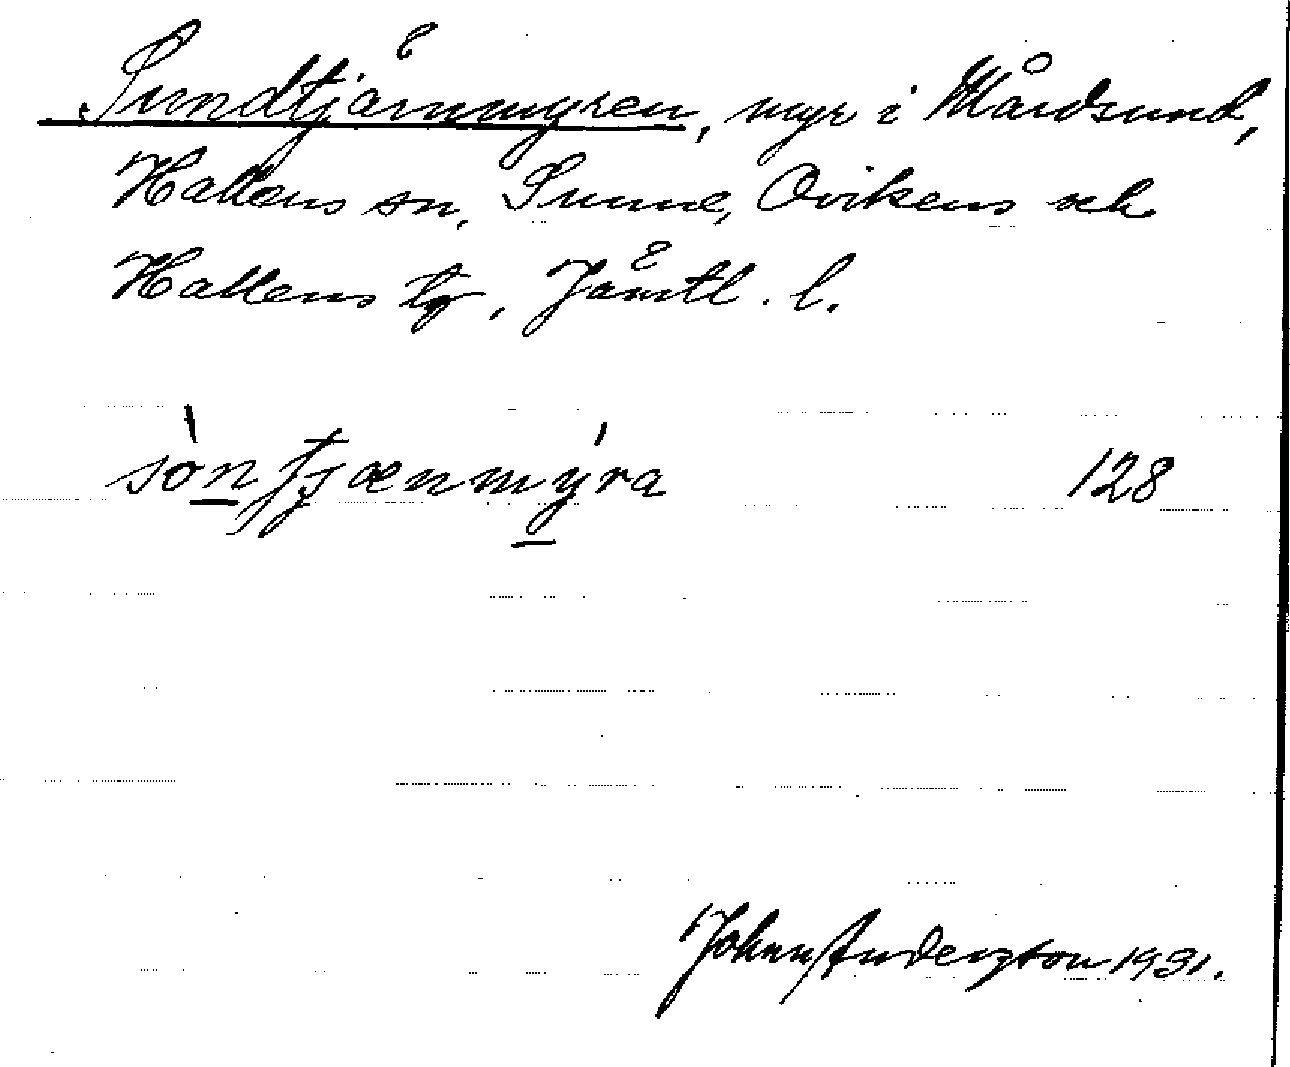 Sundtjärnmyren, myr i Mårdsund,
Hallens sn, Sunne, Ovikens och
Hallens tg, Jämtl. l.
sòn tjænmýra 128
Johan Anderzton 1931.